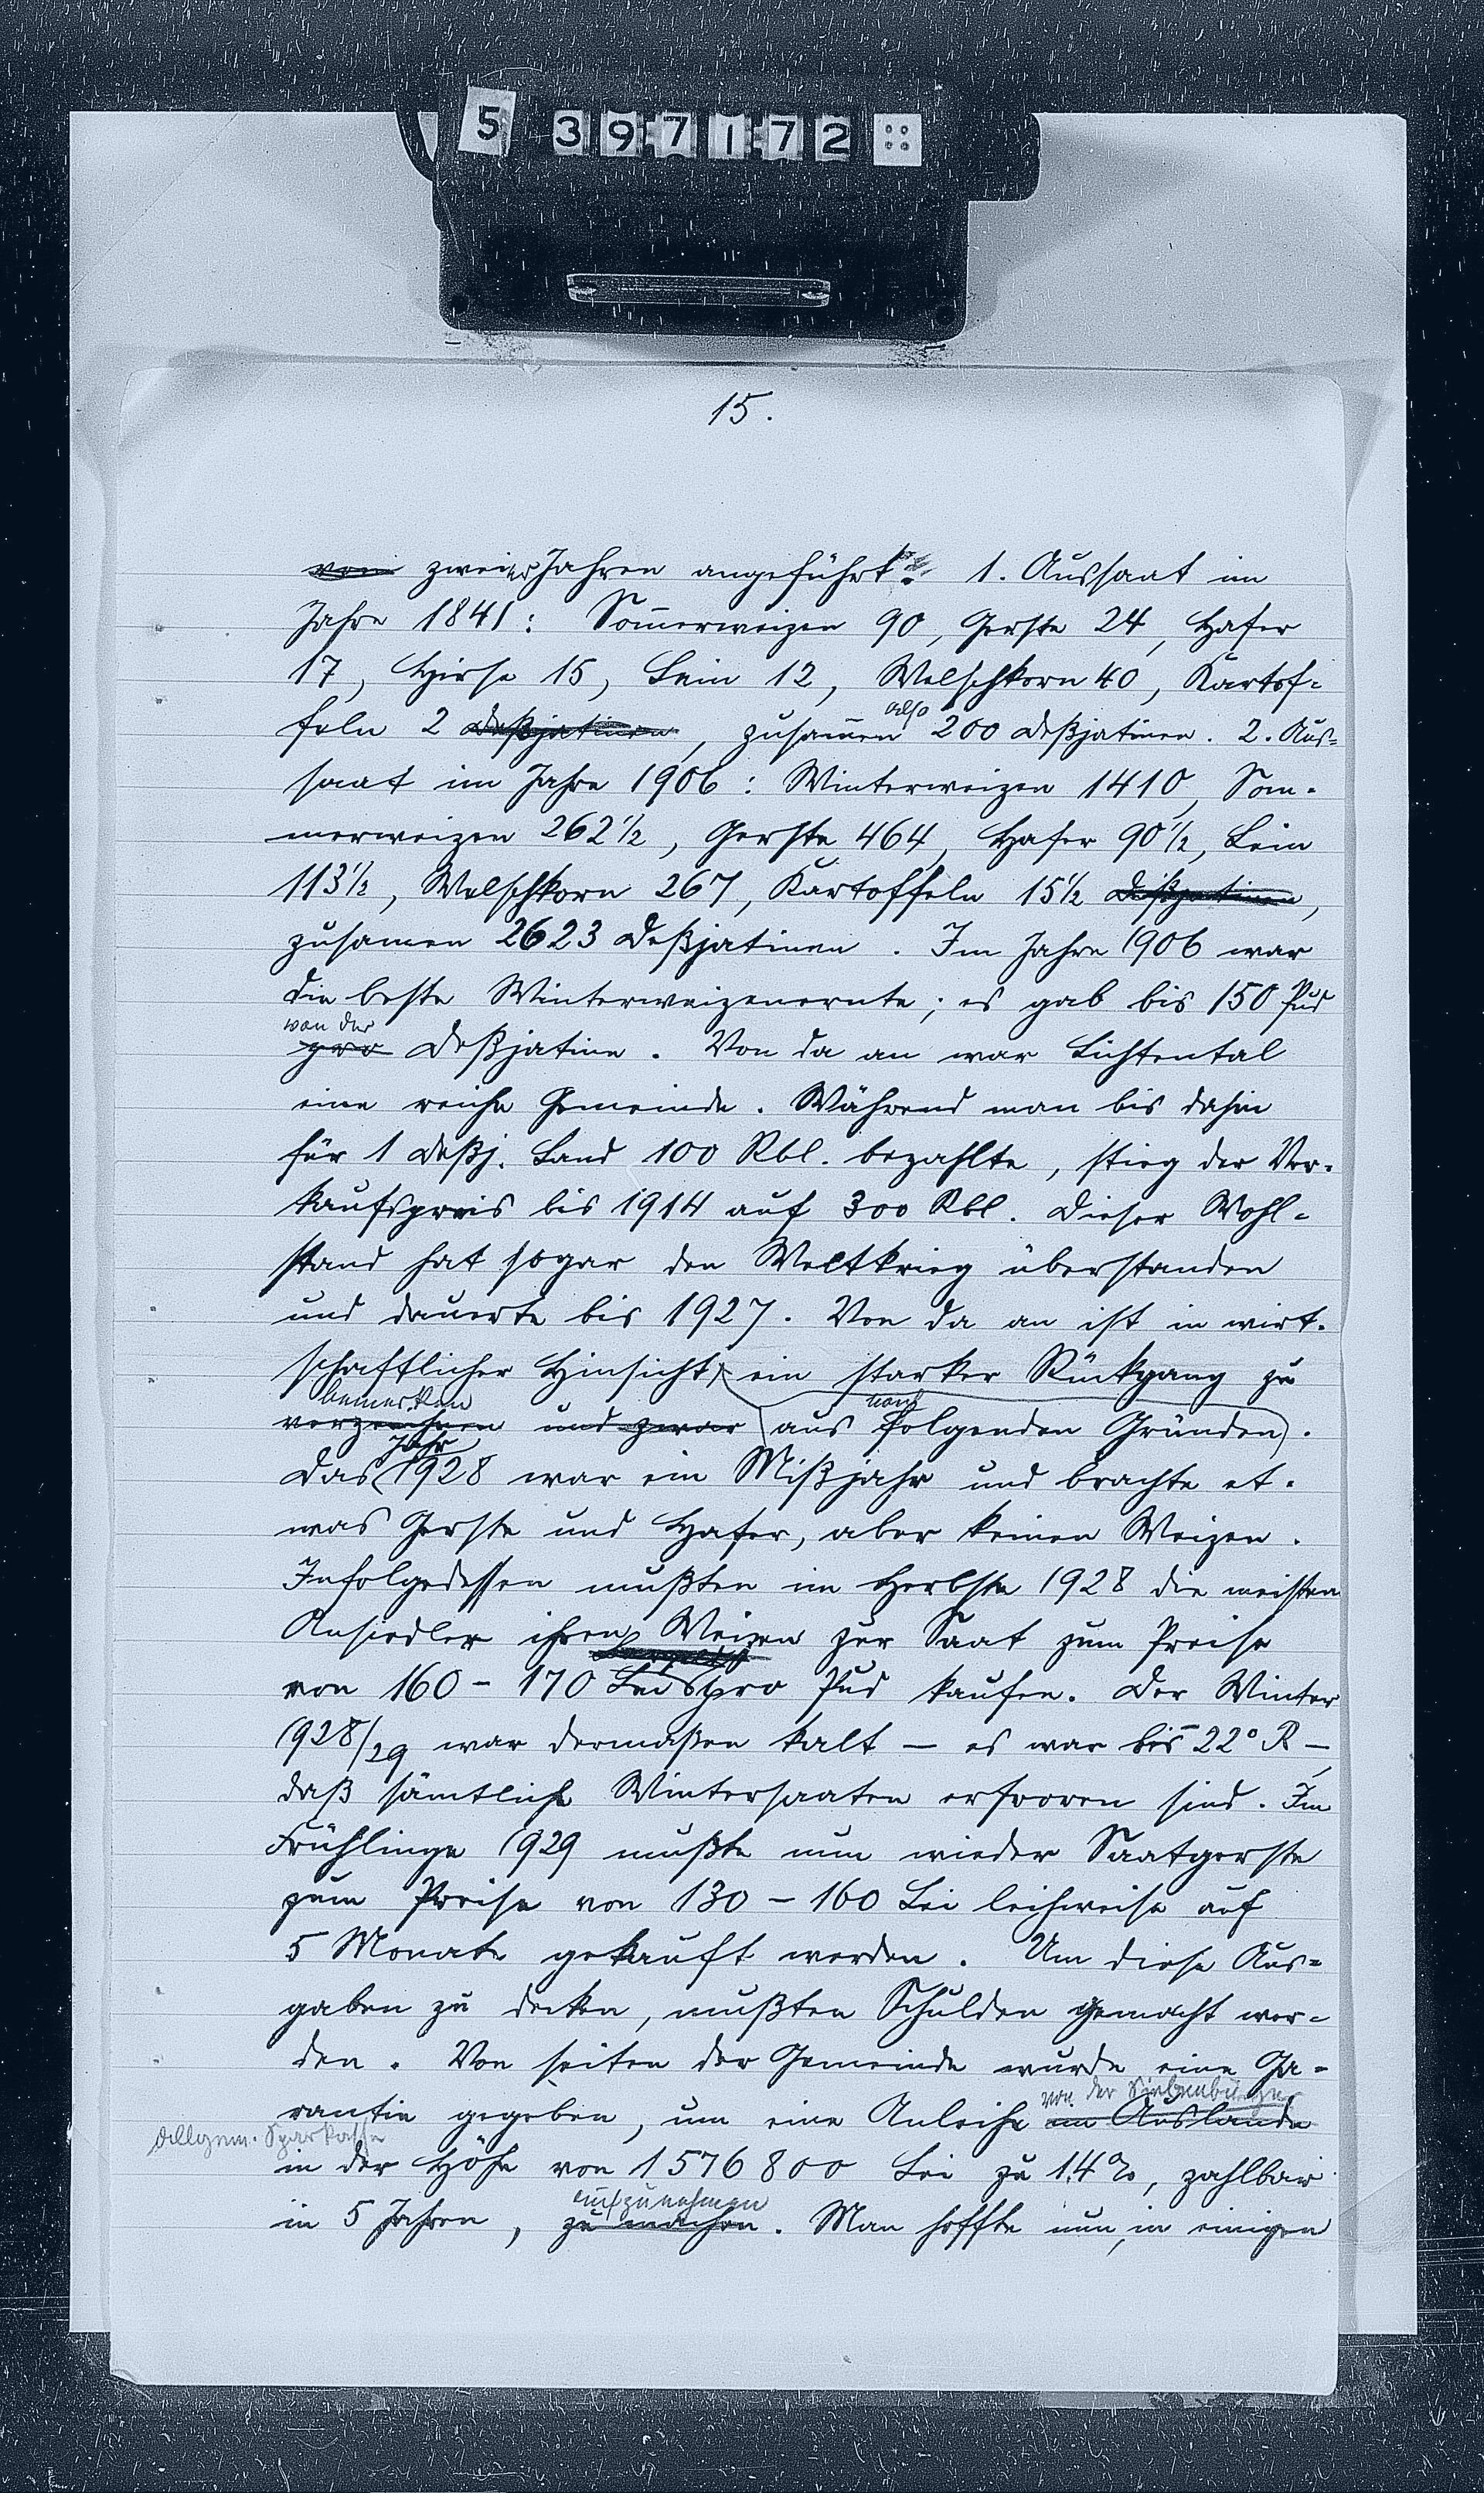 5 397172
15.
von zweier Jahren angeführt: 1. Aussaat im
Jahre 1841: Som̄erweizen 90, Gerste 24, Hafer
17, Hirse 15, Lein 12, Welschkorn 40, Kartof-
also
feln 2 Deßjatinen, zusam̄en 200 Deßjatinen. 2. Aus-
saat im Jahre 1906: Winterweizen 1410, Som-
merweizen 262½, Gerste 464, Hafer 90½, Lein
113½, Welschkorn 267, Kartoffeln 15½ Deßjatinen,
zusamen 2623 Deßjatinen. Im Jahre 1906 war
die beste Winterweizenernte; es gab bis 150 Pud
von der
pro Deßjatine. Von da an war Lichtental
eine reiche Gemeinde. Während man bis dahin
für 1 Deßj. Land 100 Rbl. bezahlte, stieg der Ver-
kaufspreis bis 1914 auf 300 Rbl. Dieser Wohl-
stand hat sogar den Weltkrieg überstanden
und dauerte bis 1927. Von da an ist in wirt-
schaftlicher Hinsicht ein starker Rückgang zu
bemerken
verzeichnen und zwar aus folgenden Gründen.
Jahr
Das 1928 war ein Mißjahr und brachte et-
was Gerste und Hafer, aber keinen Weizen.
Infolgedessen mußten im Herbste 1928 die meisten
Ansiedler ihren Weizen zur Saat zum Preise
von 160 - 170 Lei pro Pud kaufen. Der Winter
1928/29 war dermaßen kalt — es war bis 22° R —
daß sämtliche Wintersaaten erfroren sind. Im
Frühlinge 1929 mußte nun wieder Saatgerste
zum Preise von 130 - 160 Lei leihweise auf
5 Monate gekauft werden. Um diese Aus-
gaben zu decken, mußten Schulden gemacht wer-
den. Von seiten der Gemeinde wurde eine Ga-
von der Siebenbürger
rantie gegeben, um eine Anleihe im Auslande
Allgem. Sparkasse
in der Höhe von 1576800 Lei zu 14%, zahlbar
aufzunehmen
in 5 Jahren, zu machen. Man hoffte nun, in einigen